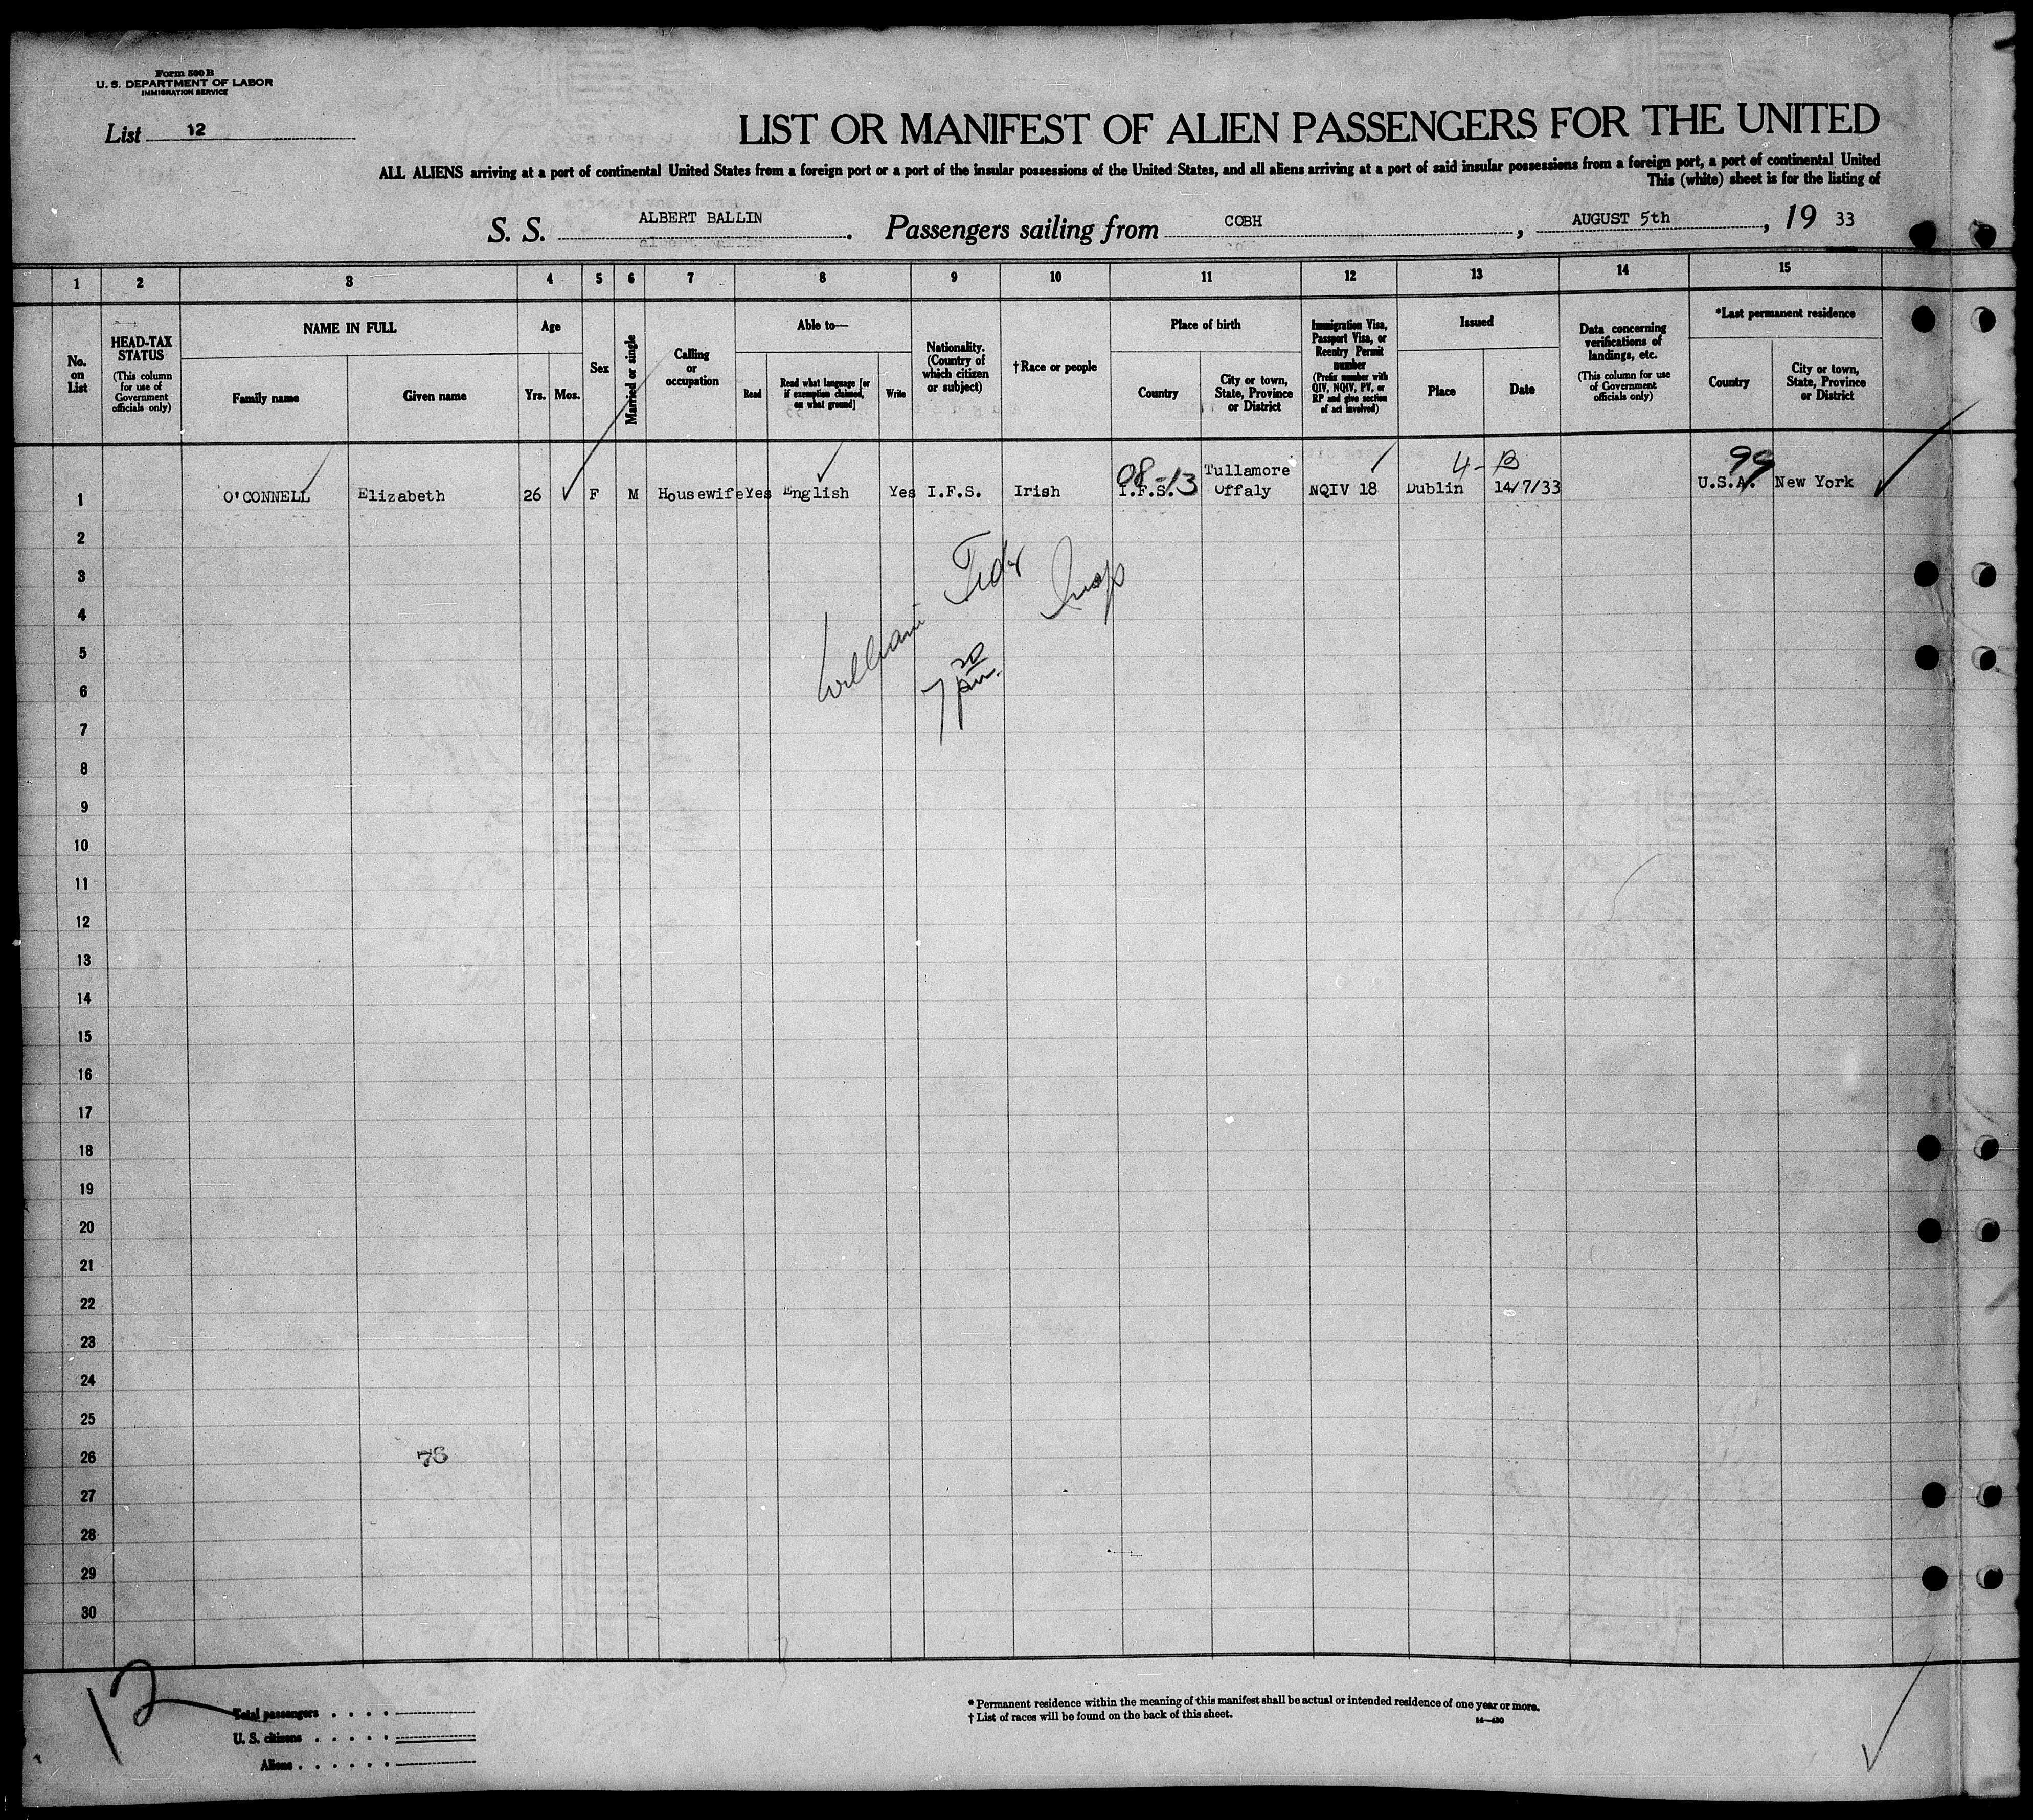 Form 500 B
U. S. DEPARTMENT OF LABOR
IMMIGRATION SERVICE
List 12
LIST OR MANIFEST OF ALIEN PASSENGERS FOR THE UNITED
ALL ALIENS arriving at a port of continental United States from a foreign port or a port of the insular possessions of the United States, and all aliens arriving at a port of said insular possessions from a foreign port, a port of continental United
This (white) sheet is for the listing of
S. S. ALBERT BALLIN. Passengers sailing from COBH, AUGUST 5th, 19 33
1 2 3 4 5 6 7 8 9 10 11 12 13 14 15
No. on List
HEAD-TAX STATUS
(This column for use of Government officials only)
NAME IN FULL
Family name
Given name
Age
Yrs. Mos.
Sex
Married or single
Calling or occupation
Able to—
Read
Read what language [or if exemption claimed, on what ground]
Write
Nationality. (Country of which citizen or subject)
† Race or people
Place of birth
Country
City or town, State, Province or District
Immigration Visa, Passport Visa, or Reentry Permit number
(Prefix number with QIV, NQIV, PV, or RP and give section of act involved)
Issued
Place
Date
Data concerning verifications of landings, etc.
(This column for use of Government officials only)
*Last permanent residence
Country
City or town, State, Province or District
08-13 4-B 99
1 O'CONNELL Elizabeth 26 F M Housewife Yes English Yes I.F.S. Irish I.F.S. Tullamore Offaly NQIV 18 Dublin 14/7/33 U.S.A. New York
2
3
4
William Insp
5
6
7 30 pm.
7
8
9
10
11
12
13
14
15
16
17
18
19
20
21
22
23
24
25
26 76
27
28
29
30
12
Total passengers
U. S. citizens
Aliens
* Permanent residence within the meaning of this manifest shall be actual or intended residence of one year or more.
† List of races will be found on the back of this sheet.